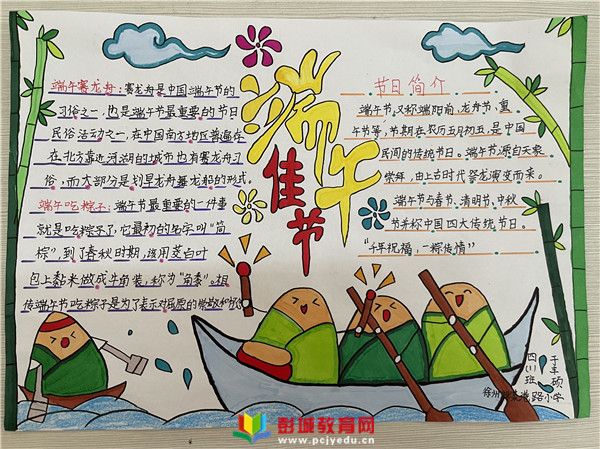 端午赛龙舟：赛龙舟是中国端午节的
习俗之一，也是端午节最重要的节日
民俗活动之一，在中国南方地区普遍存
在北方靠近河湖的城市也有赛龙舟习
俗，而大部分是划旱龙舟舞龙船的形式。
端午吃粽子：端午节最重要的一件事
就是吃粽子了，它最初的名字叫“筒
粽”，到了春秋时期，该用茭白叶
包上黏米做成牛角装，称为“角黍”。相
传端午节吃粽子是为了表示对屈原的崇敬和怀
端午
佳节
节日简介
端午节，又称端阳节、龙舟节、重
午节等，节期在农历五月初五，是中国
民间的传统节日。端午节源自天象
崇拜，由上古时代祭龙演变而来。
端午节与春节、清明节、中秋
节并称中国四大传统节日。
“千年祝福，一粽传情”
四(1)班
于丰硕
徐州
路小学
彭城教育网
www.pcjyedu.cn